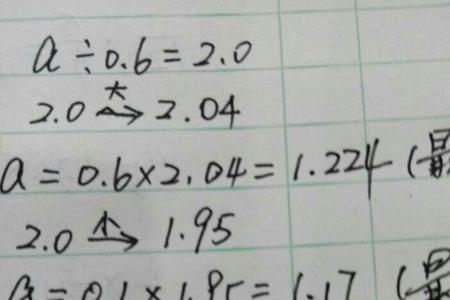 a÷0.6=2.0
2.0 大→ 2.04
a=0.6×2.04=1.224(最
2.0 小→ 1.95
1.95=1.17(最